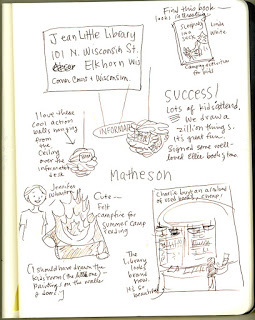 Jean Little Library
101 N. Wisconsin St.
Elkhorn Wis
Corner Court & Wisconsin.
Find this book -
looks interesting
Sleeping
in a
Sack
Linda
White
Camping activities
for kids
I love these
cool action
balls hanging
from
the
Ceiling
over the
information
desk
INFORMATION
SUCCESS!
Lots of kids attend.
We draw a
zillion things.
It's great fun.
Signed some well-
loved Ellie books, too.
Matheson
Jennifer
Wharton
Cute -
Felt
campfire for
summer camp
reading
(I should have drawn the
kids' room (the one)
Paintings on the walls
& doors!)
Charlie buys an armload
of used books - cheap!
The
Library
looks
brand
new.
It's so
beautiful